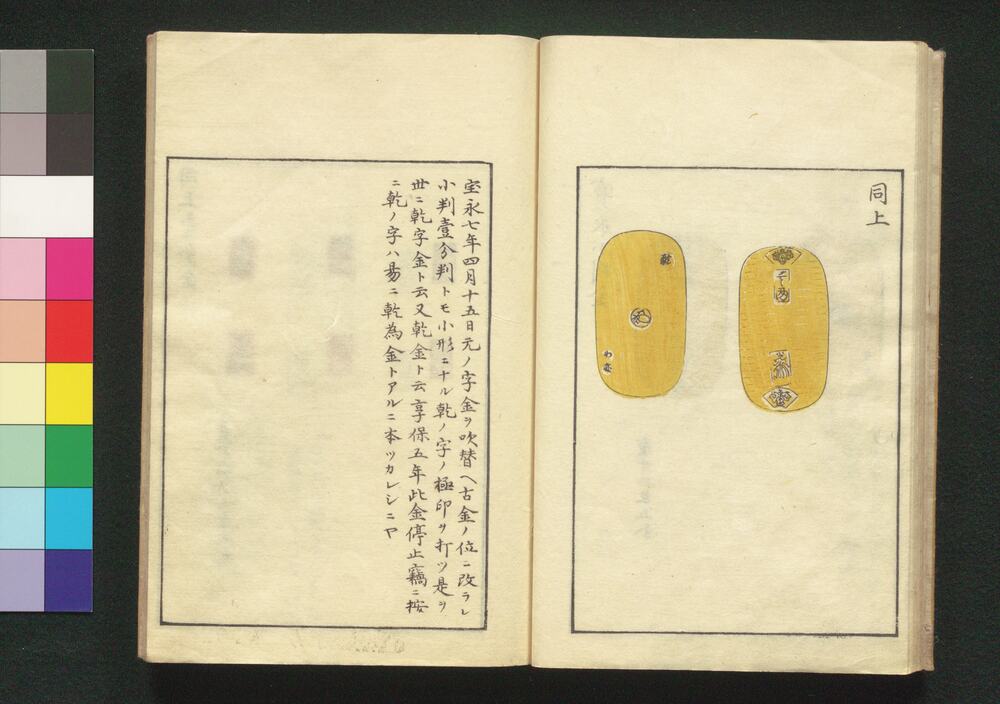 同上
乾
宝永七年四月十五日元ノ字金ヲ吹替ヘ古金ノ位ニ改ラレ
小判壹分判トモ小形ニナル乾ノ字ノ極印ヲ打ツ是ヲ
世ニ乾字金ト云又乾金ト云享保五年此金停止竊ニ按
ニ乾ノ字ハ易ニ乾為金トアルニ本ツカレシニヤ